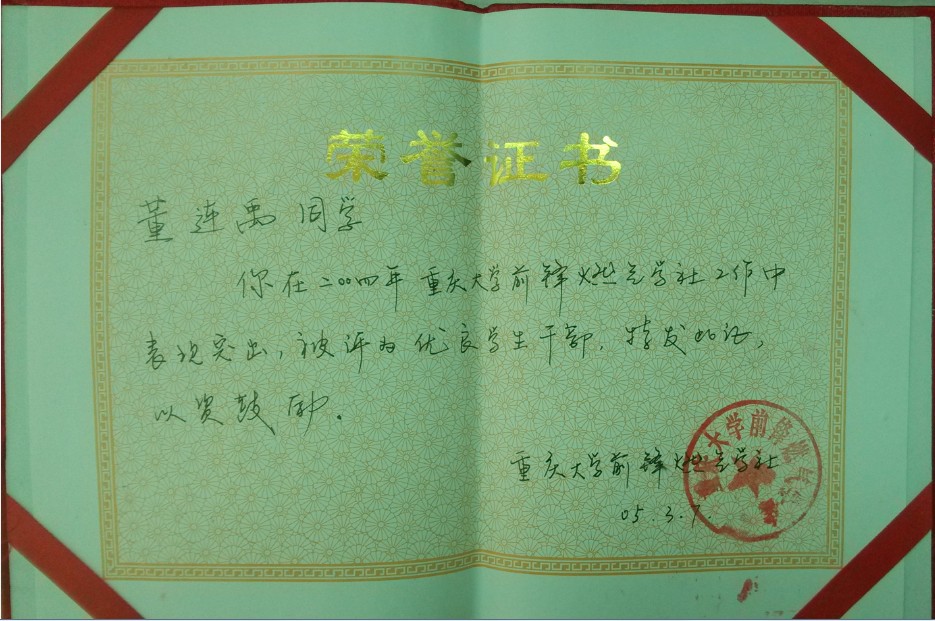 荣誉证书
董连禹 同学
你在二〇〇四年重庆大学前锋燃气学社工作中
表现突出，被评为优良学生干部，特发此证，
以资鼓励.
重庆大学前锋燃气学社
05.3.7.
大学前锋燃气学社